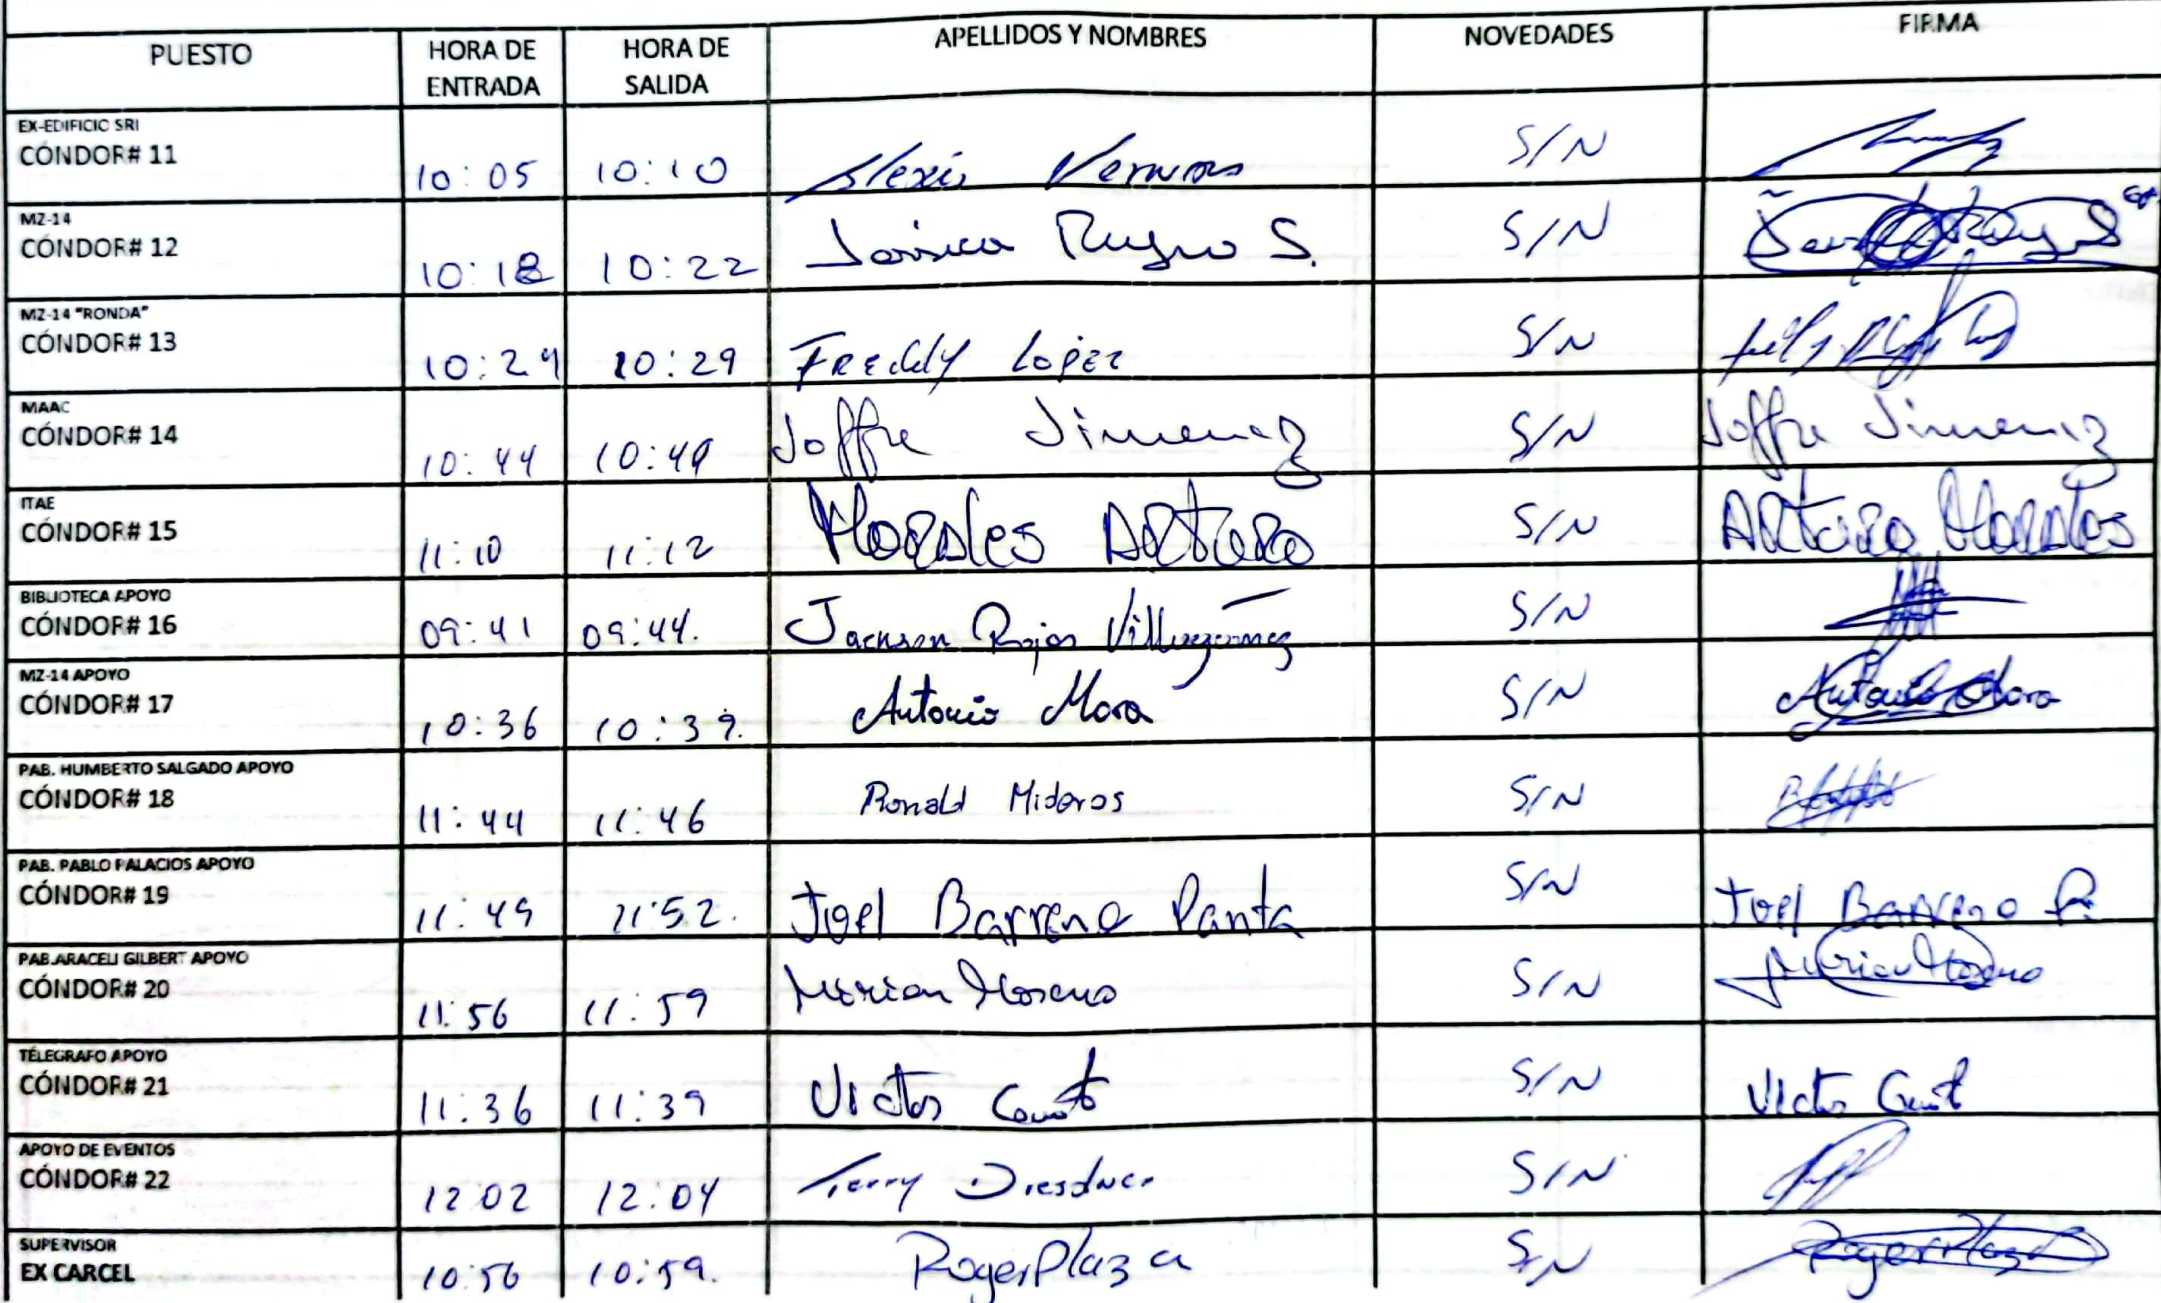 PUESTO HORA DE ENTRADA HORA DE SALIDA APELLIDOS Y NOMBRES NOVEDADES FIRMA
EX-EDIFICIO SRI
CÓNDOR# 11 10:05 10:10 Alexis S/N
MZ-14
CÓNDOR# 12 10:18 10:22 S. S/N
MZ-14 "RONDA"
CÓNDOR# 13 10:24 10:29 Freddy Lopez S/N
MAAC
CÓNDOR# 14 10:44 10:49 Joffre Jimenez S/N Joffre Jimenez
ITAE
CÓNDOR# 15 11:10 11:12 Morales Arturo S/N Arturo Morales
BIBLIOTECA APOYO
CÓNDOR# 16 09:41 09:44. Jackson Rojas Villagomez S/N
MZ-14 APOYO
CÓNDOR# 17 10:36 10:39. Antonio Mora S/N Antonio Mora
PAB. HUMBERTO SALGADO APOYO
CÓNDOR# 18 11:44 11:46 Ronald Mideros S/N
PAB. PABLO PALACIOS APOYO
CÓNDOR# 19 11:49 11:52. Joel Barreno Panta S/N Joel Barreno P.
PAB.ARACELI GILBERT APOYO
CÓNDOR# 20 11:56 11:59 Mirian Moreno S/N Mirian Moreno
TÉLEGRAFO APOYO
CÓNDOR# 21 11:36 11:39 Victor S/N Victor
APOYO DE EVENTOS
CÓNDOR# 22 12:02 12:04 S/N
SUPERVISOR
EX CARCEL 10:56 10:59. Roger Plaza S/N Roger Plaza